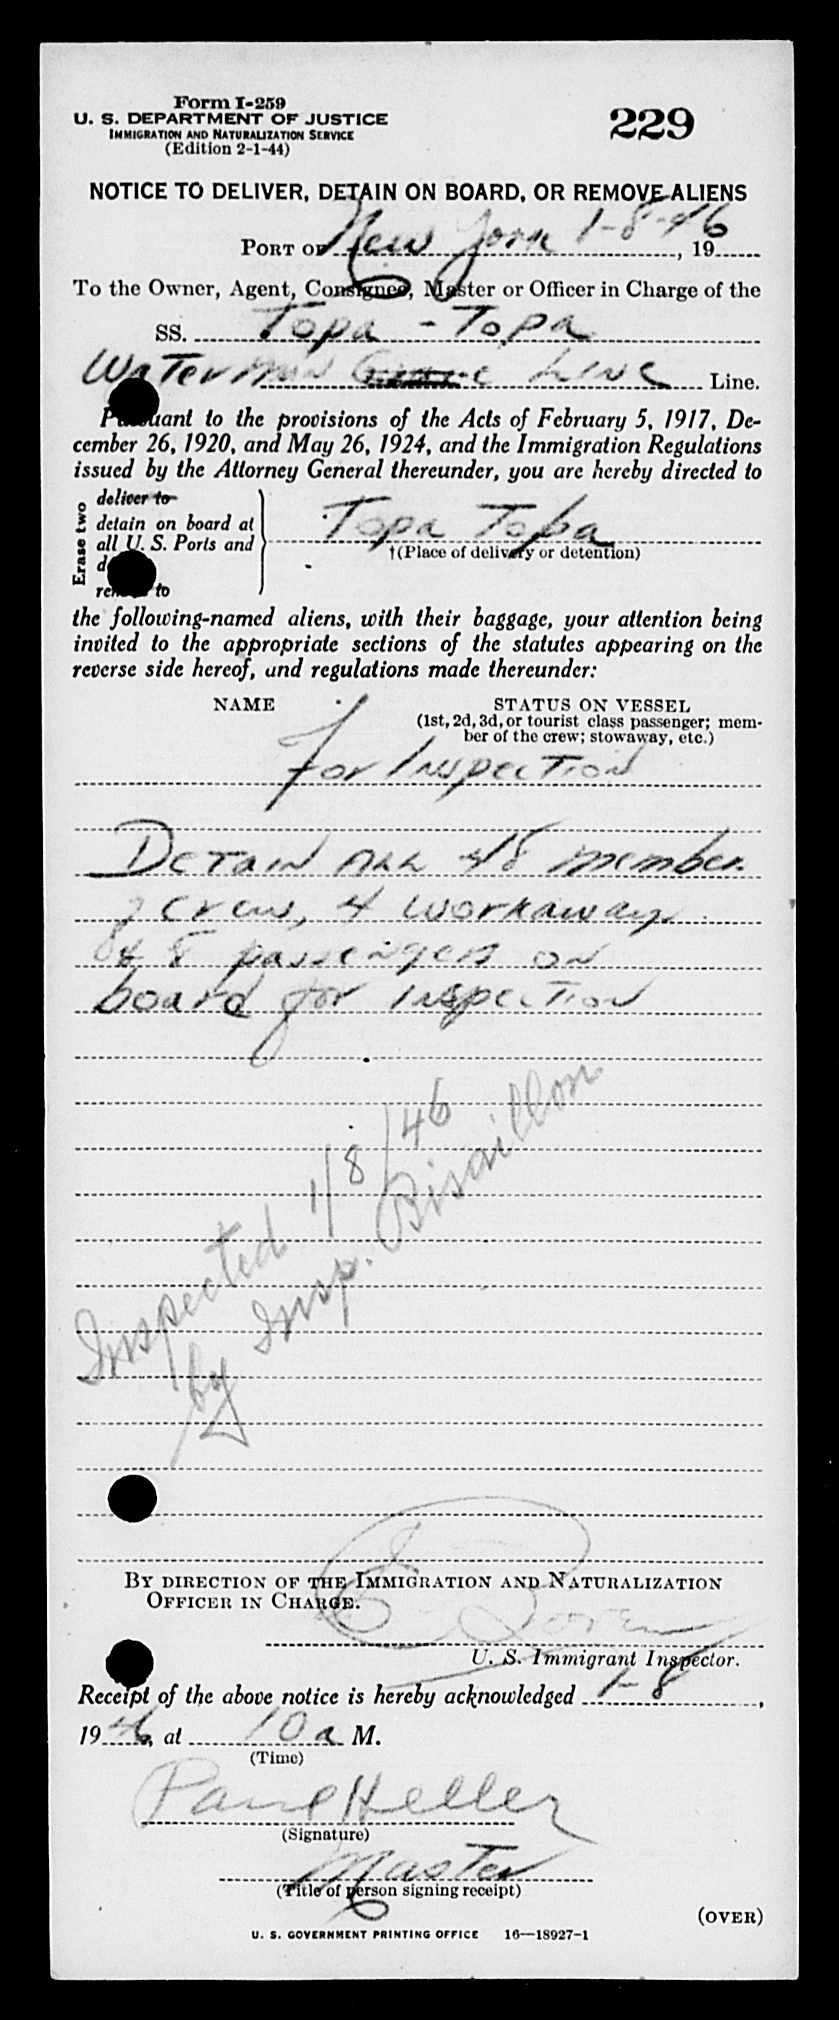 Form I-259
U. S. DEPARTMENT OF JUSTICE
IMMIGRATION AND NATURALIZATION SERVICE
(Edition 2-1-44)
229
NOTICE TO DELIVER, DETAIN ON BOARD, OR REMOVE ALIENS
PORT OF New York 1-8-46, 19
To the Owner, Agent, Consignee, Master or Officer in Charge of the
SS. Topa - Topa
Waterman Line Line.
Pursuant to the provisions of the Acts of February 5, 1917, De-
cember 26, 1920, and May 26, 1924, and the Immigration Regulations
issued by the Attorney General thereunder, you are hereby directed to
Erase two
deliver to
detain on board at
all U. S. Ports and
remove to
Topa Topa
†(Place of delivery or detention)
the following-named aliens, with their baggage, your attention being
invited to the appropriate sections of the statutes appearing on the
reverse side hereof, and regulations made thereunder:
NAME
STATUS ON VESSEL
(1st, 2d, 3d, or tourist class passenger; mem-
ber of the crew; stowaway, etc.)
for Inspection
Detain all 48 member
of crew, 4 workaways
& 8 passengers on
board for inspection
Inspected 1/8/46
by Insp. Bisaillon
BY DIRECTION OF THE IMMIGRATION AND NATURALIZATION
OFFICER IN CHARGE.
U. S. Immigrant Inspector.
Receipt of the above notice is hereby acknowledged 1-8,
1946, at 10 a M.
(Time)
Paul Heller
(Signature)
Master
(Title of person signing receipt)
(OVER)
U. S. GOVERNMENT PRINTING OFFICE 16—18927-1